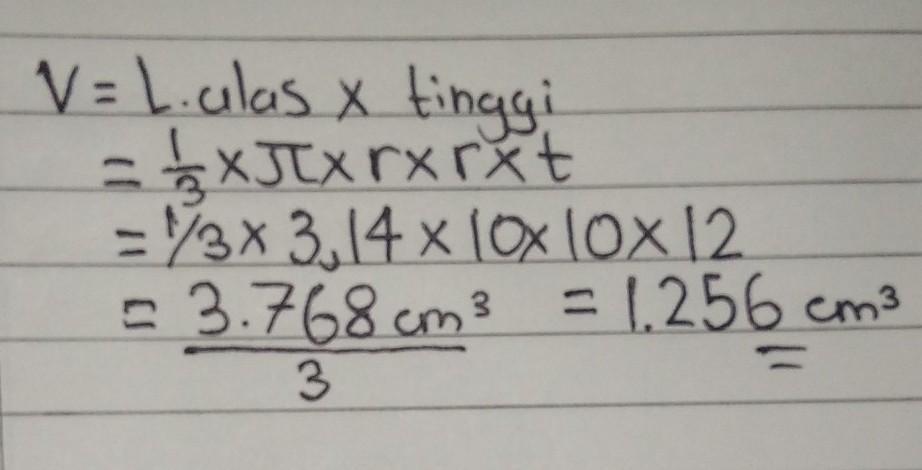 V = L.alas x tinggi
= 1/3 x π x r x r x t
= 1/3 x 3,14 x 10 x 10 x 12
= 3.768 cm³ / 3 = 1.256 cm³